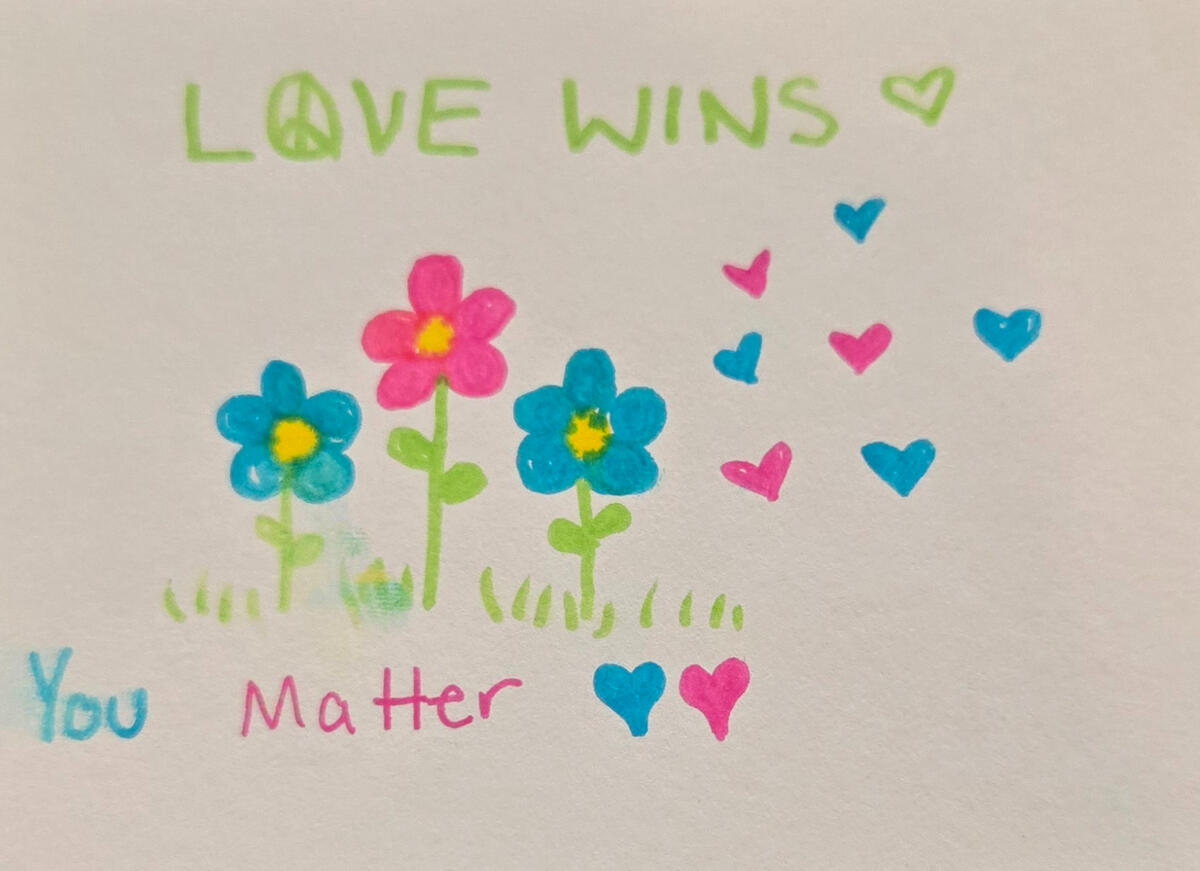 LOVE WINS
You Matter